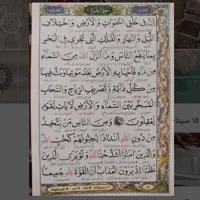 إِنَّ فِي خَلْقِ السَّمٰوَاتِ وَالْأَرْضِ وَاخْتِلَافِ
اللَّيْلِ وَالنَّهَارِ وَالْفُلْكِ الَّتِي تَجْرِي فِي الْبَحْرِ
بِمَا يَنْفَعُ النَّاسَ وَمَا أَنْزَلَ اللَّهُ مِنَ السَّمَاءِ
مِنْ مَاءٍ فَأَحْيَا بِهِ الْأَرْضَ بَعْدَ مَوْتِهَا وَبَثَّ فِيهَا
مِنْ كُلِّ دَابَّةٍ وَتَصْرِيفِ الرِّيَاحِ وَالسَّحَابِ
الْمُسَخَّرِ بَيْنَ السَّمَاءِ وَالْأَرْضِ لَآيَاتٍ لِقَوْمٍ
يَعْقِلُونَ وَمِنَ النَّاسِ مَنْ يَتَّخِذُ
مِنْ دُونِ اللَّهِ أَنْدَادًا يُحِبُّونَهُمْ كَحُبِّ اللَّهِ
وَالَّذِينَ آمَنُوا أَشَدُّ حُبًّا لِلَّهِ وَلَوْ يَرَى الَّذِينَ
ظَلَمُوا إِذْ يَرَوْنَ الْعَذَابَ أَنَّ الْقُوَّةَ لِلَّهِ جَمِيعًا